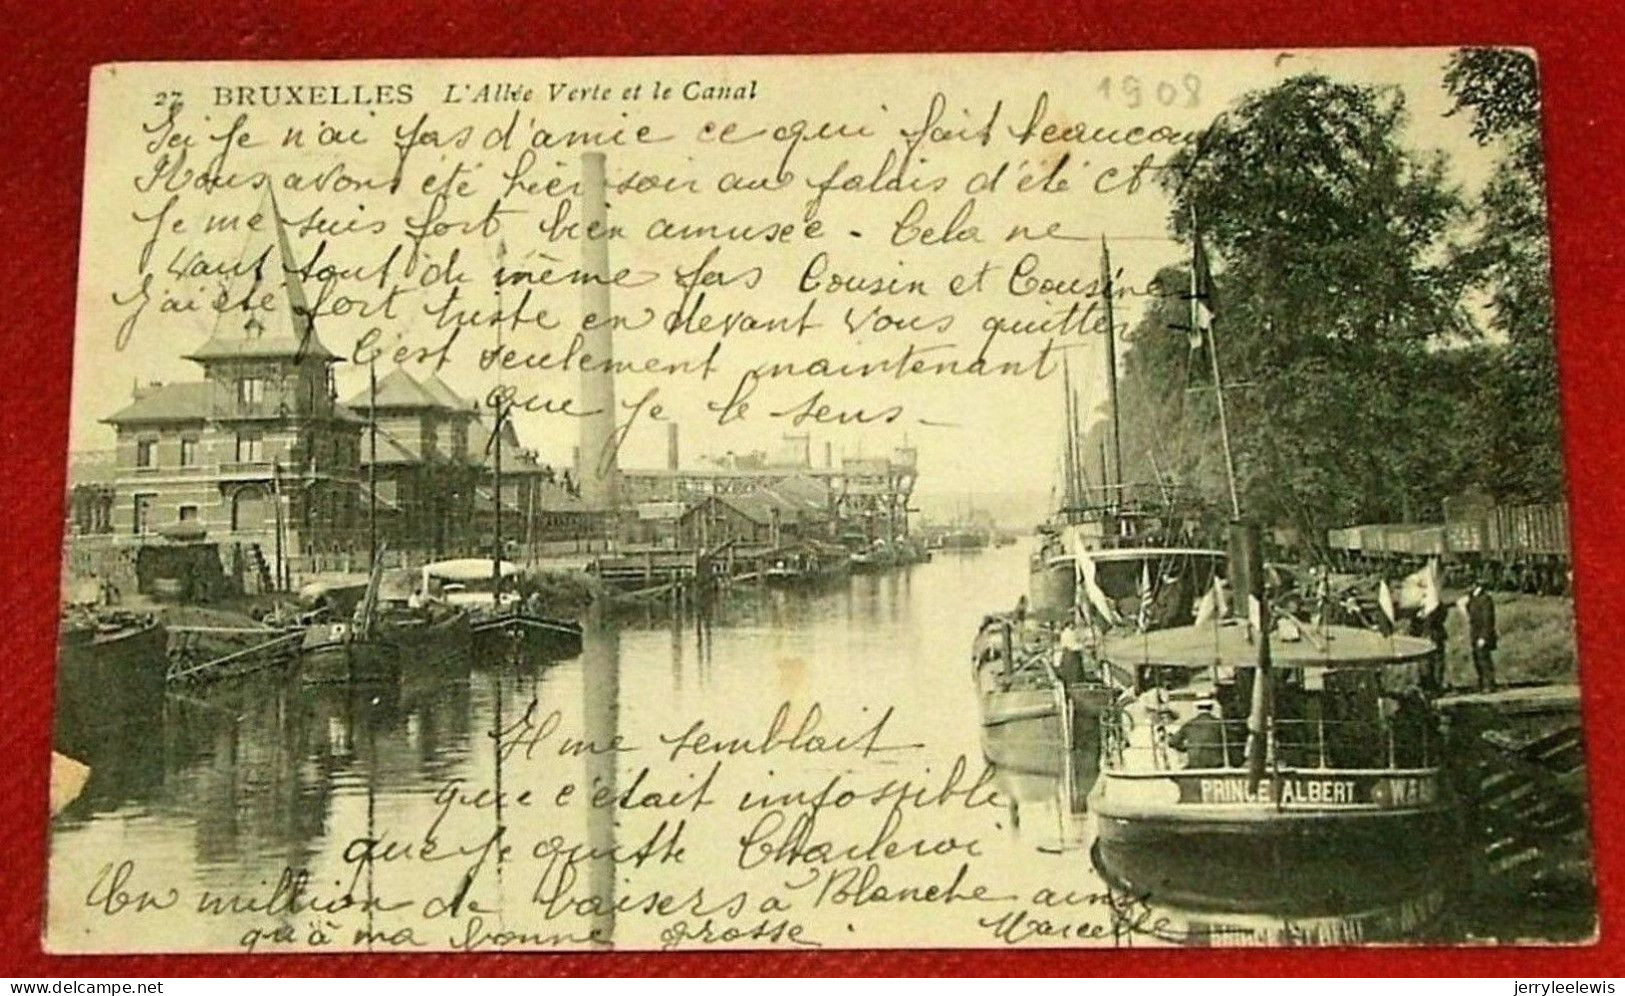 27 BRUXELLES L'Allée Verte et le Canal
1908
Ici je n'ai pas d'amie ce qui fait beaucoup
Nous avons été hier soir au palais d'été et
je me suis fort bien amusée - Cela ne
vaut tout de même pas Cousin et Cousine
j'ai été fort triste en devant vous quitter
C'est seulement maintenant
que je le sens -
Il me semblait
que c'était impossible
que je quitte Charleroi -
Un million de baisers à Blanche ainsi
qu'à ma bonne grosse. Marcelle
PRINCE ALBERT
delcampe.net
jerryleelewis